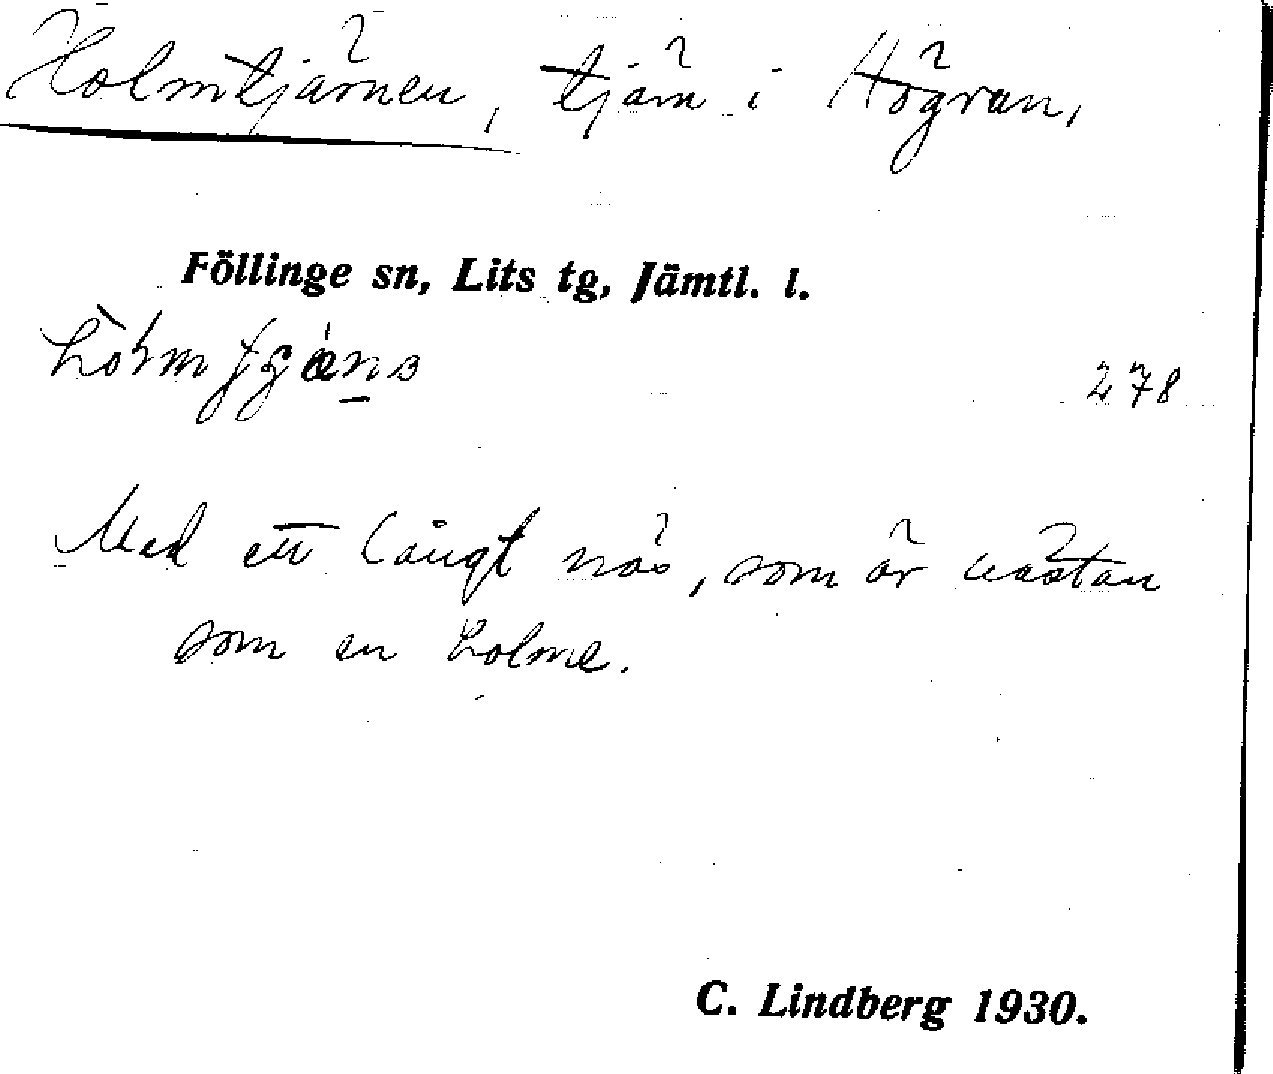 Holmtjärnen, tjärn i Högran,
Föllinge sn, Lits tg, Jämtl. l.
278
Med ett långt näs, som är nästan
som en holme.
C. Lindberg 1930.